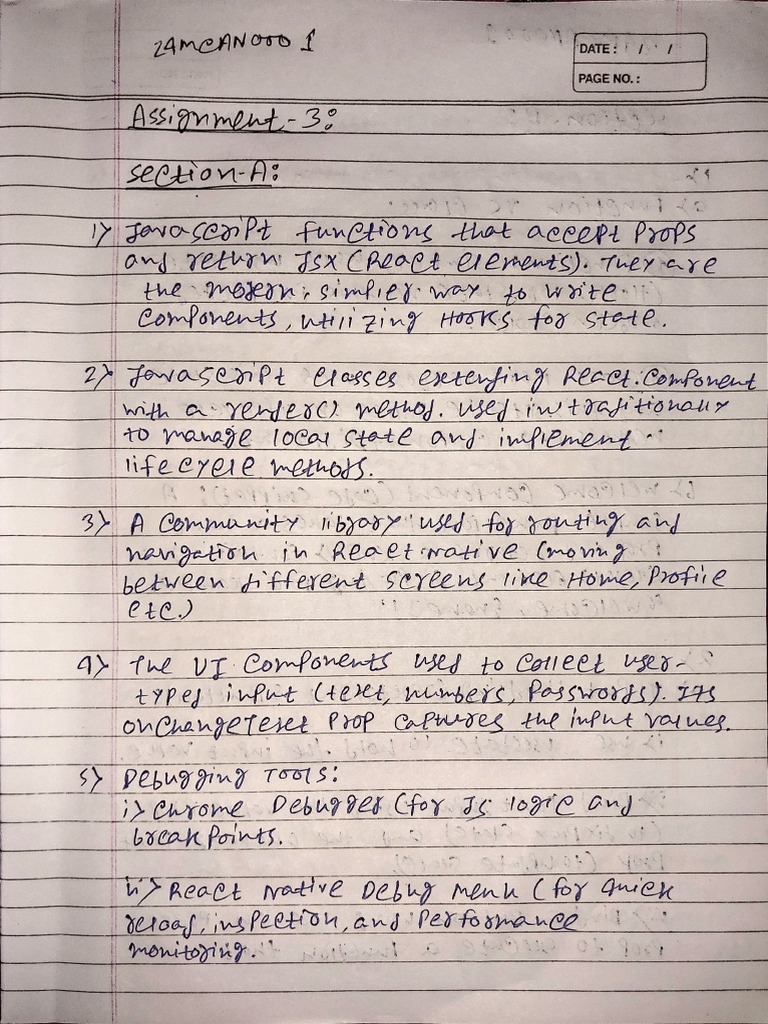 24MCAN0001
DATE: / /
PAGE NO.:
Assignment-3:
Section-A:
1) Javascript functions that accept props
and return JSX (React elements). They are
the modern, simpler way to write
components, utilizing Hooks for state.
2) Javascript classes extending React.Component
with a render() method. used in traditionally
to manage local state and implement
lifecycle methods.
3) A community library used for routing and
navigation in React Native (moving
between different screens like Home, Profile
etc.)
4) The UI Components used to collect user-
typed input (text, numbers, passwords). Its
onChangeText prop captures the input values.
5) Debugging Tools:
i) Chrome Debugger (for JS logic and
breakpoints.
ii) React Native Debug menu (for quick
reload, inspection, and performance
monitoring.